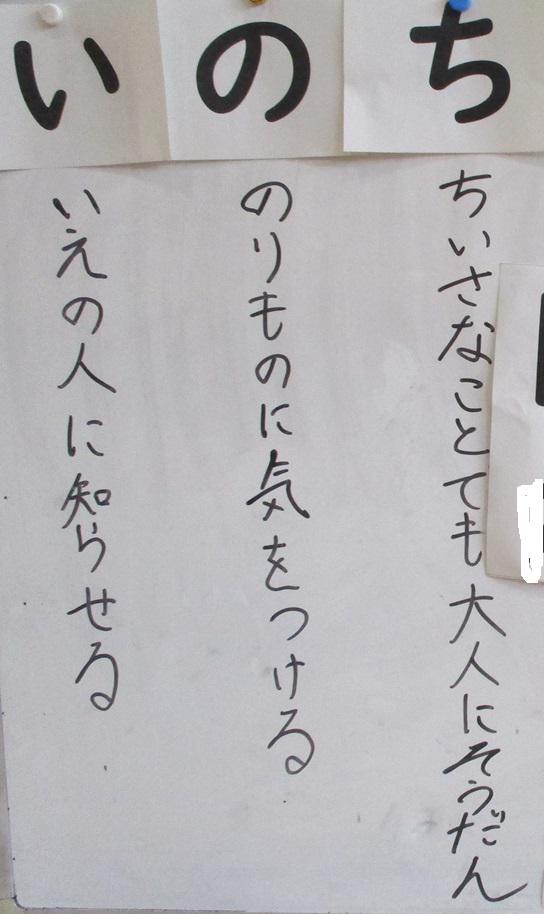 いのち
ちいさなことても大人にそうだん
のりものに気をつける
いえの人に知らせる